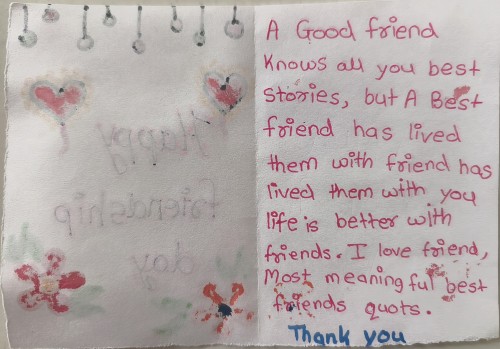 Happy
friendship
day
A Good friend
Knows all you best
stories, but A Best
friend has lived
them with friend has
lived them with you
life is better with
friends. I love friend,
Most meaning ful best
friends quots.
Thank you